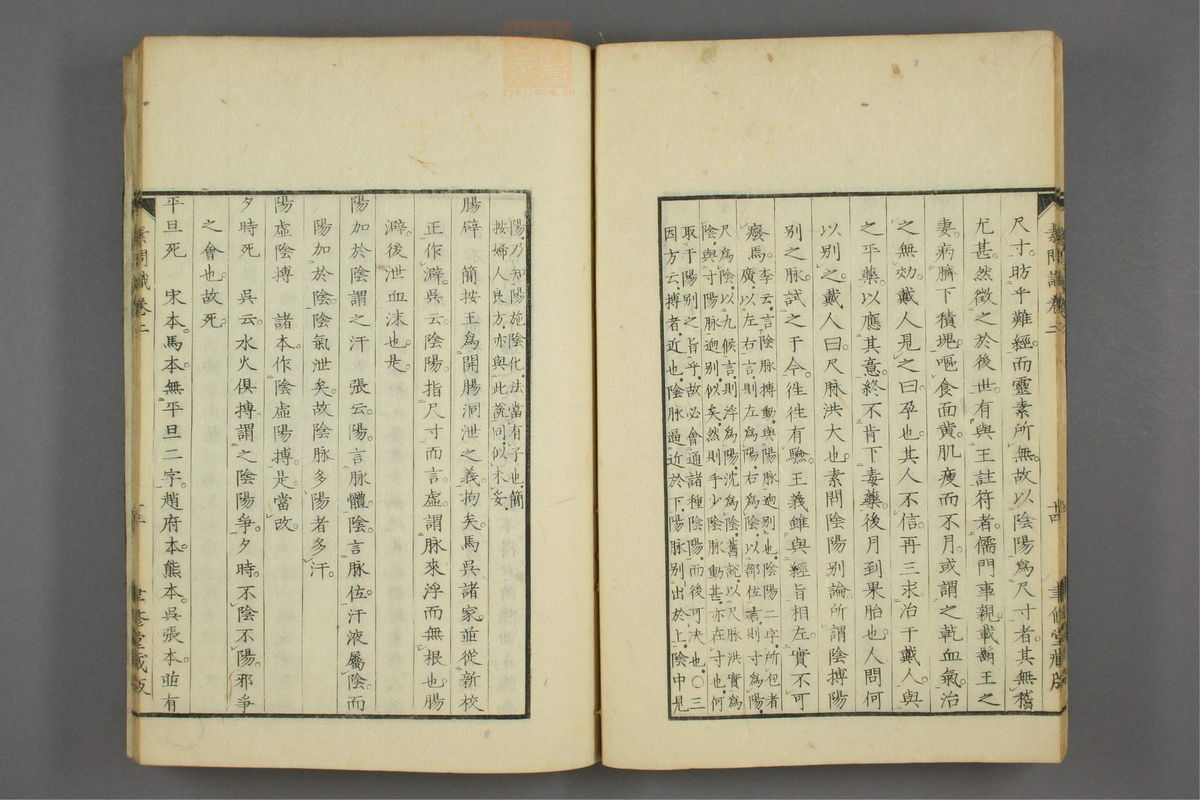 素問識卷二
十四
聿修堂藏版
尺寸。昉乎難經。而靈素所無。故以陰陽爲尺寸者。其無稽
尤甚。然徵之於後世。有與王註符者。儒門事親。載衛王之
妻。病臍下積塊。嘔食面黃。肌瘦而不月。或謂之乾血氣治
之無効。戴人見之曰。孕也。其人不信。再三求治于戴人。與
之平藥。以應其意。終不肯下毒藥。後月到果胎也。人問何
以別之。戴人曰。尺脉洪大也。素問陰陽別論所謂陰搏陽
別之脉。試之于今。徃徃有驗。王義雖與經旨相左。實不可
癈焉。李云。言陰脉搏動。與陽脉逈別也。陰陽二字。所包者
廣。以左右言。則左爲陽。右爲陰。以部位言。則寸爲陽。
尺爲陰。以九候言。則浮爲陽。沈爲陰。舊說以尺脉洪實爲
陰。與寸陽脉逈別。似矣。然則手少陰脉動甚。亦在寸也。何
取于陽別之旨乎。故必會通諸種陰陽。而後可決也。○三
因方云。搏者。近也。陰脉逼近於下。陽脉別出於上。陰中見
陽。乃知陽施陰化。法當有子也。簡
按婦人良方。亦與此說同。似未妥。
腸辟　簡按王爲開腸洞泄之義。拘矣。馬吳諸家。並從新校
正作澼。吳云。陰陽。指尺寸而言。虛。謂脉來浮而無根也。腸
澼。後泄血沫也。是。
陽加於陰謂之汗　張云。陽。言脉體。陰。言脉位。汗液屬陰。而
陽加於陰。陰氣泄矣。故陰脉多陽者多汗。
陽虛陰搏　諸本。作陰虛陽搏。是。當改。
夕時死　吳云。水火俱搏。謂之陰陽爭。夕時。不陰不陽。邪爭
之會也。故死。
平旦死　宋本。馬本。無平旦二字。趙府本。熊本。吳張本。並有
素問識卷二
聿修堂藏版